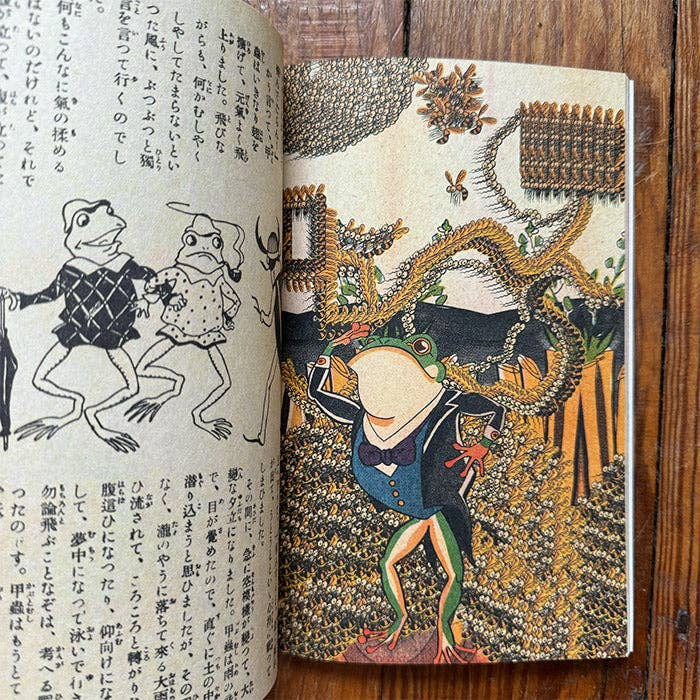 か言つて、甲
蟲はいきなり翅を
擴げて、元氣よく飛
上りました。飛びな
がらも、何かむしやく
しやしてたまらないとい
つた風に、ぶつぶつと獨
言を言つて行くのでし
た。
何もこんなに氣の揉める
はないのだけれど、それで
立つて、
しまひました。
その間に、急に空模樣が變つて、大
變な夕立になりました。甲蟲は雨の
で、目が覺めたので、直ぐに土の中
潜り込まうと思ひましたが、その
なく、瀧のやうに落ちて來る大雨
ひ流されて、ころころと轉がり、
腹這ひになつたり、仰向けにな
して、夢中になつて泳いで行き
勿論飛ぶことなぞは、考へる
つたのです。甲蟲はもうとて